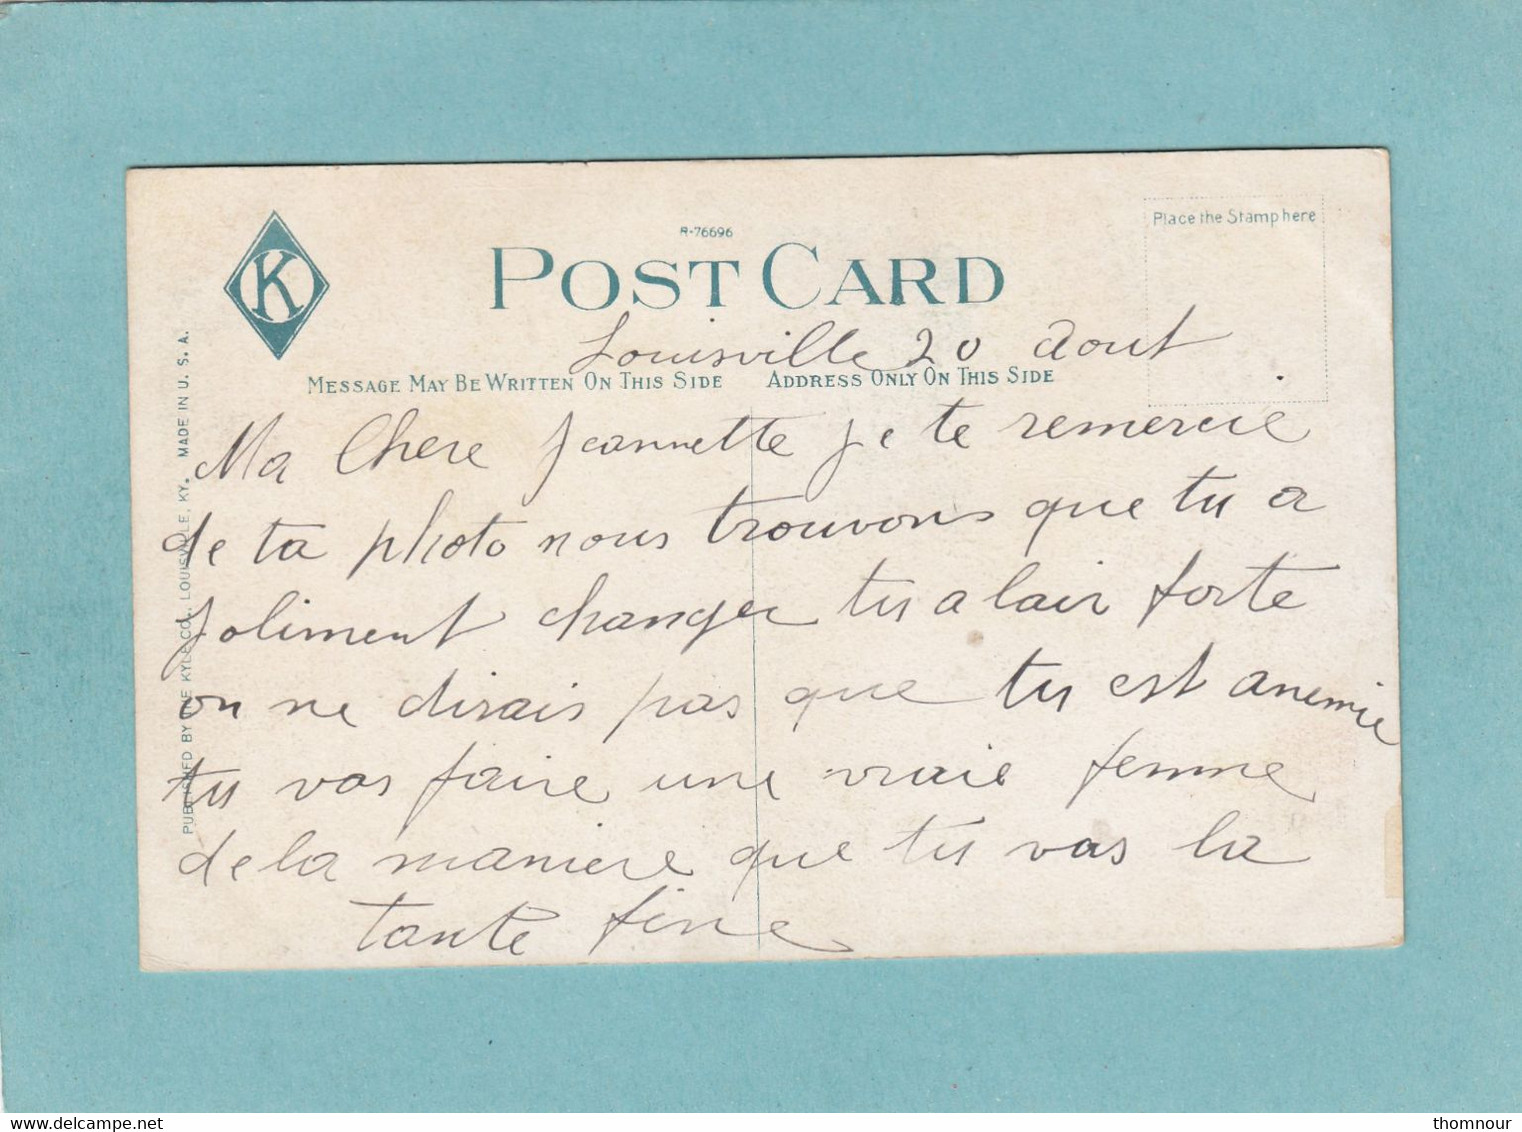 R-76696
POST CARD
Place the Stamp here
K
Louisville 20 Aout
MESSAGE MAY BE WRITTEN ON THIS SIDE
ADDRESS ONLY ON THIS SIDE
Ma Chere Jeannette je te remercie
de ta photo nous trouvons que tu a
joliment changer tu a lair forte
on ne dirais pas que tu est anemie
tu vas faire une vraie femme
de la maniere que tu vas la
tante fine
PUBLISHED BY THE KYLE CO., LOUISVILLE, KY. MADE IN U. S. A.
thomnour